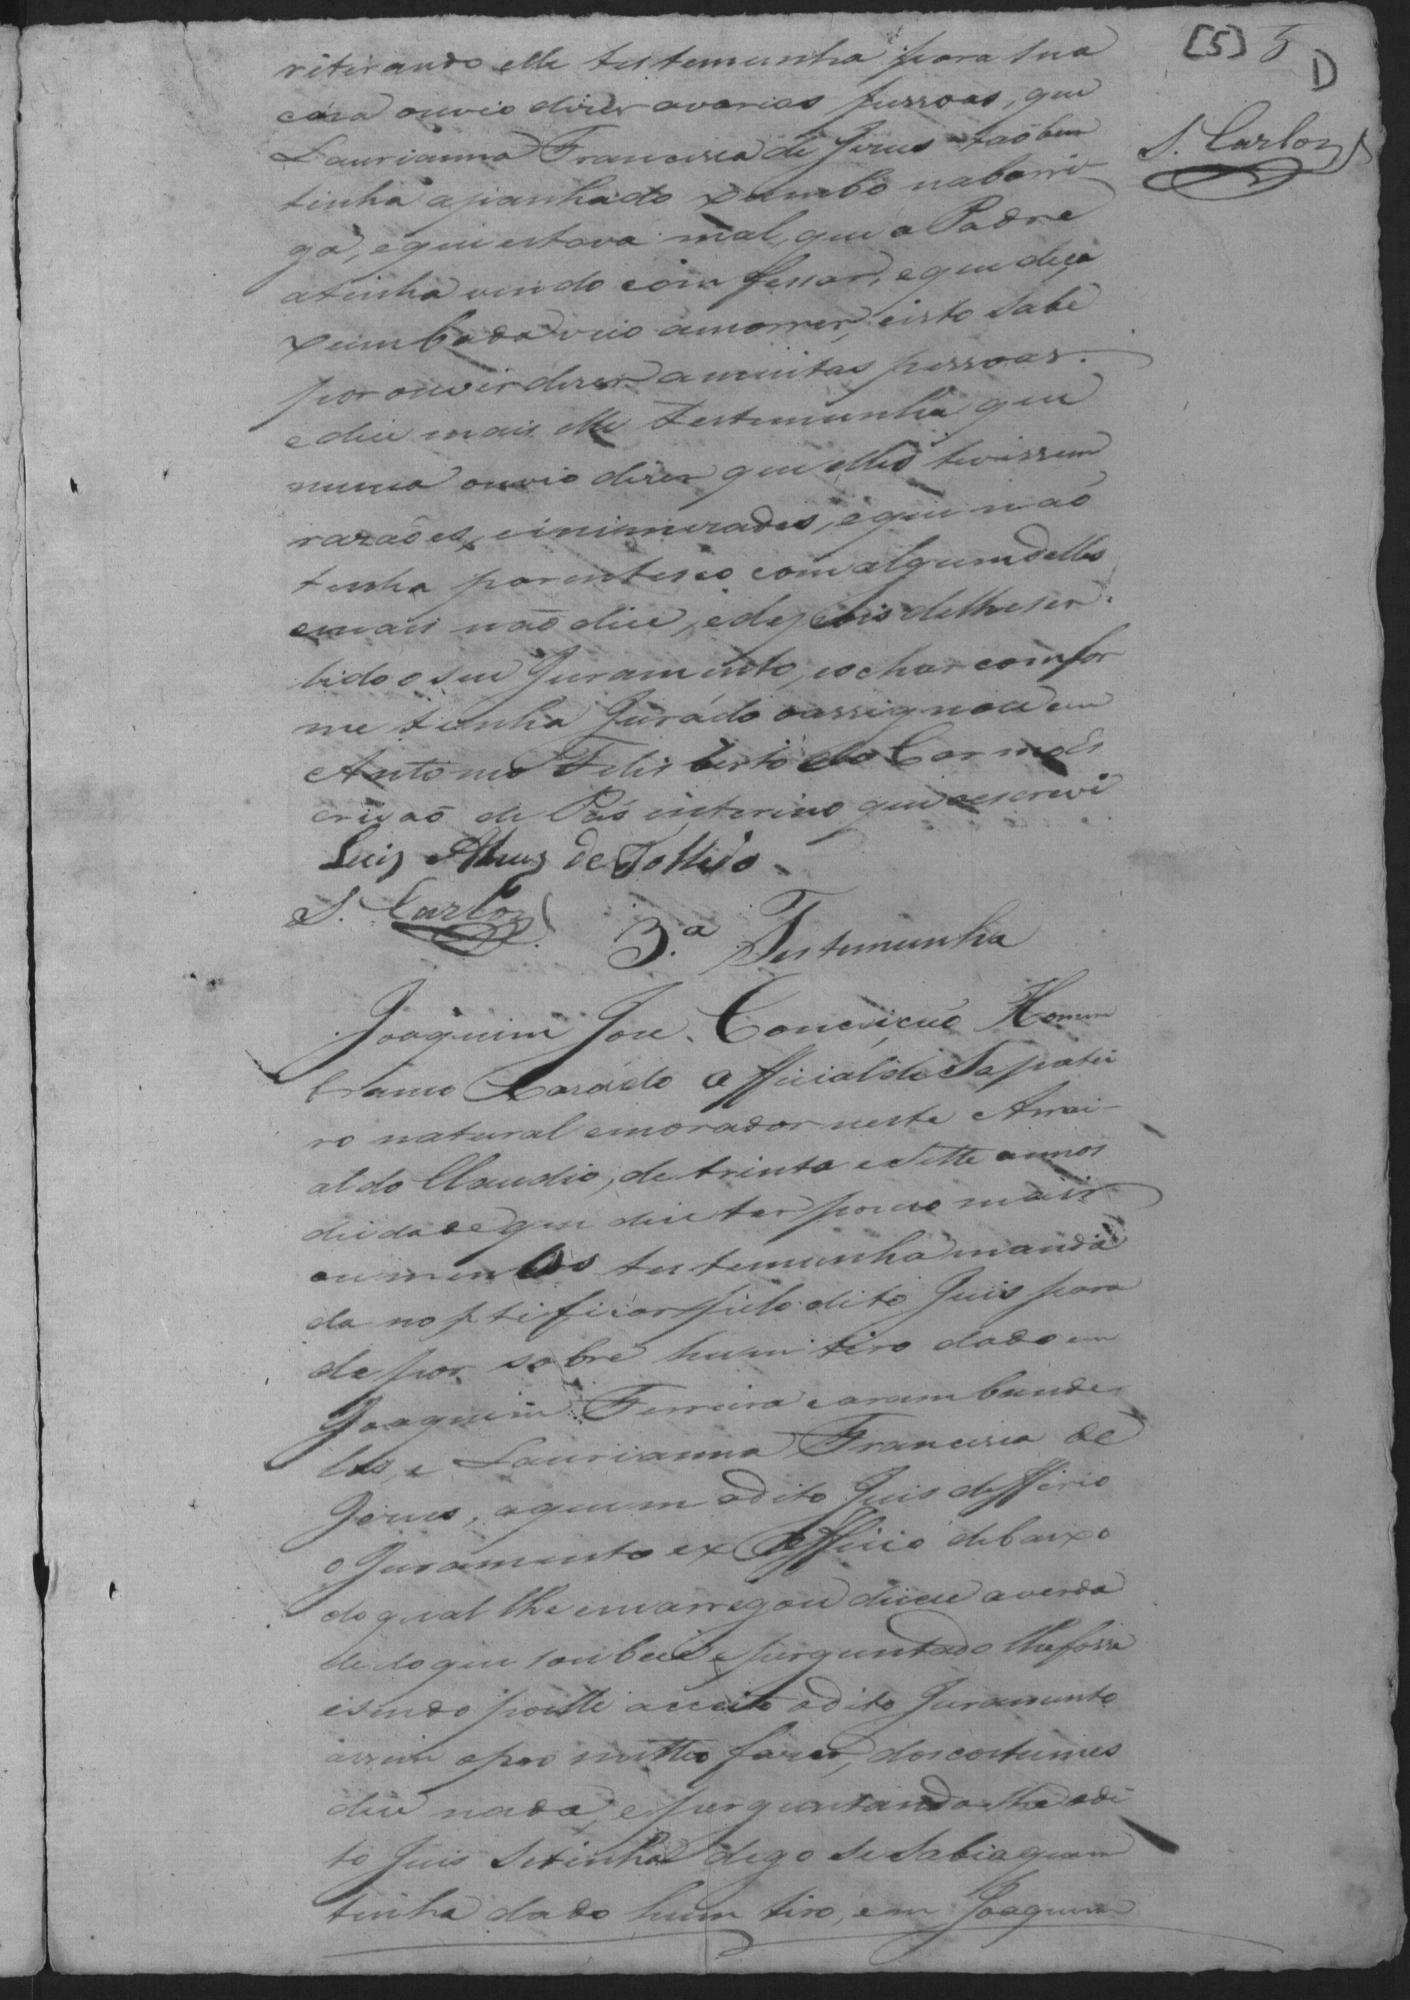 [5] 5
D
S. Carlos
ritirando elle testemunha para sua
casa ouvio diser avarias pessoas, que
Laurianna Francisca de Jesus taobem
tinha apanhado xumbo nabarri-
ga, eque estava mal, que o Padre
atinha vindo comfessar, eque desa
xumbada veio amorrer, eisto sabe
por ouvir diser amuitas pessoas.
edice mais elle testemunha que
nunca ouvio diser que elles tivessem
razaões, einimizades, eque não
tinha parentesco com algum delles
emais não dice, edepois delheser
lido o seu Juramento, eachar comfor
me tinha Jurádo oassignou eu
Antonio Felisberto do Carmo Es
crivaõ de Pás interino que oescrevi
Luis Alves de Tolledo
S. Carlos
3.ª Testemunha
Joaquim Jose Conceicaõ Homem
branco Cazádo Official de Sapatei
ro natural emorador neste Arrai-
al do Claudio, de trinta e Sette annos
deidade que dice ter pouco mais
oumenos testemunha manda
da noptificar pelo dito Juis para
depor sobre hum tiro dado em
Joaquim Ferreira
e Laurianna Francisca de
Jesus, aquem odito Juis defferio
o Juramento ex Officio debaixo
do qual lhe encarregou dicese averda
de doque soubece e perguntado lhe fosse
esendo porelle aceito odito Juramento
assim opromitteo fazer, doscostumes
dice nada, eperguntandolhe odi
to Juis Setinha digo se Sabia quem
tinha dado hum tiro, em Joaquim